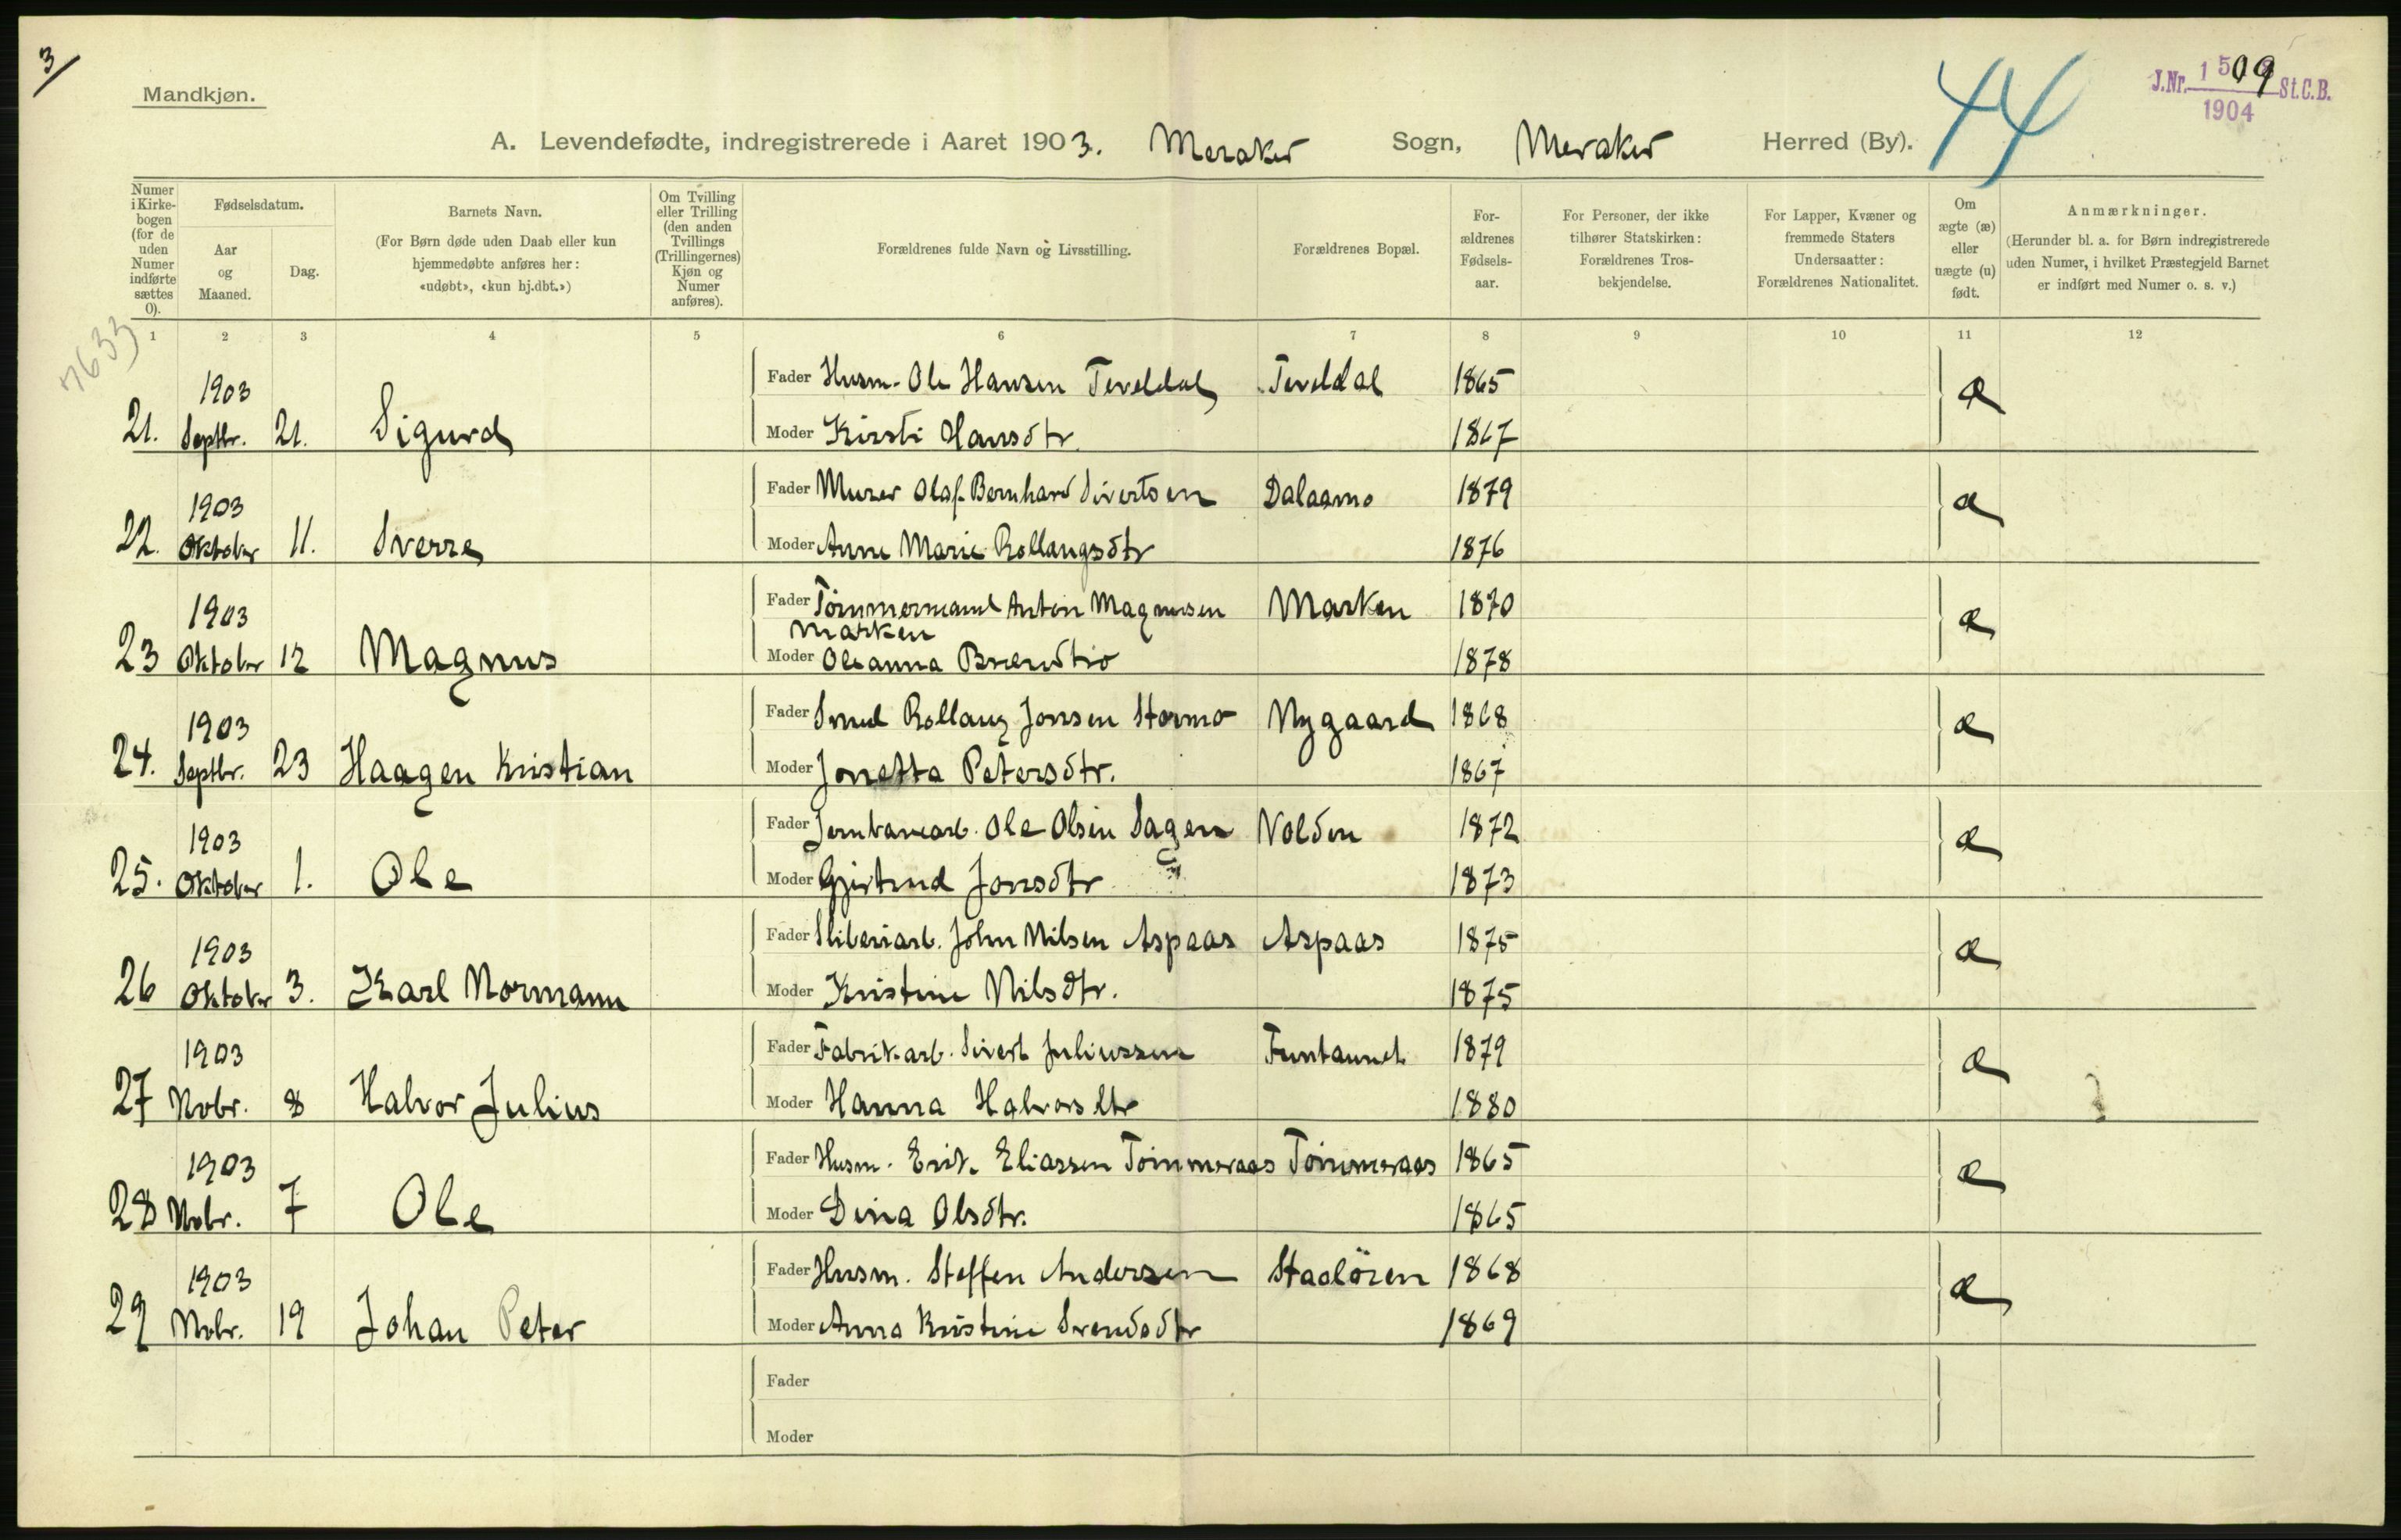 3/
Mandkjøn.
J.Nr. 1509 St.C.B.
1904
44
A. Levendefødte, indregistrerede i Aaret 1903. Meraker Sogn, Meraker Herred (By).
Numer i Kirkebogen (for de uden Numer indførte sættes 0).
Fødselsdatum.
Aar og Maaned.
Dag.
Barnets Navn.
(For Børn døde uden Daab eller kun hjemmedøbte anføres her: «udøbt», «kun hj.dbt.»)
Om Tvilling eller Trilling (den anden Tvillings (Trillingernes) Kjøn og Numer anføres).
Forældrenes fulde Navn og Livsstilling.
Forældrenes Bopæl.
Forældrenes Fødselsaar.
For Personer, der ikke tilhører Statskirken: Forældrenes Trosbekjendelse.
For Lapper, Kvæner og fremmede Staters Undersaatter: Forældrenes Nationalitet.
Om ægte (æ) eller uægte (u) født.
Anmærkninger.
(Herunder bl. a. for Børn indregistrerede uden Numer, i hvilket Præstegjeld Barnet er indført med Numer o. s. v.)
1 2 3 4 5 6 7 8 9 10 11 12
7633
1903 Fader Husm. Ole Hansen Teveldal Teveldal 1865 æ
21. Septbr. 21. Sigurd Moder Kirsti Hansdtr. 1867
1903 Fader Murer Olaf Bernhard Sivertsen Dalaamo 1879 æ
22. Oktober 11. Sverre Moder Anne Marie Rollaugsdtr 1876
1903 Fader Tömmermand Anton Magnusen Marken 1870 æ
Marken
23 Oktober 12 Magnus Moder Oleanna 1878
1903 Fader Smed Rollaug Jonsen Stormo Nygaard 1868 æ
24. Septbr. 23 Haagen Kristian Moder Jonetta Petersdtr. 1867
1903 Fader Jernbanearb. Ole Olsen Sagen Volden 1872 æ
25. Oktober 1. Ole Moder Gjertrud Jonsdtr 1873
1903 Fader Sliberiarb. John Nilsen Aspaas Aspaas 1875 æ
26 Oktober 3. Karl Normann Moder Kristine Nilsdtr. 1875
1903 Fader Fabrikarb. Sivert Juliussen Funtaunet 1879 æ
27 Nobr. 8 Halvor Julius Moder Hanna Halvorsdtr 1880
1903 Fader Husm. Erik Eliassen Tömmeraas Tömmeraas 1865 æ
28 Nobr. 7 Ole Moder Dina Olsdtr. 1865
1903 Fader Husm. Steffen Andersen Staalören 1868 æ
29 Nobr. 19 Johan Peter Moder Anna Kristine Svendsdtr 1869
Fader
Moder